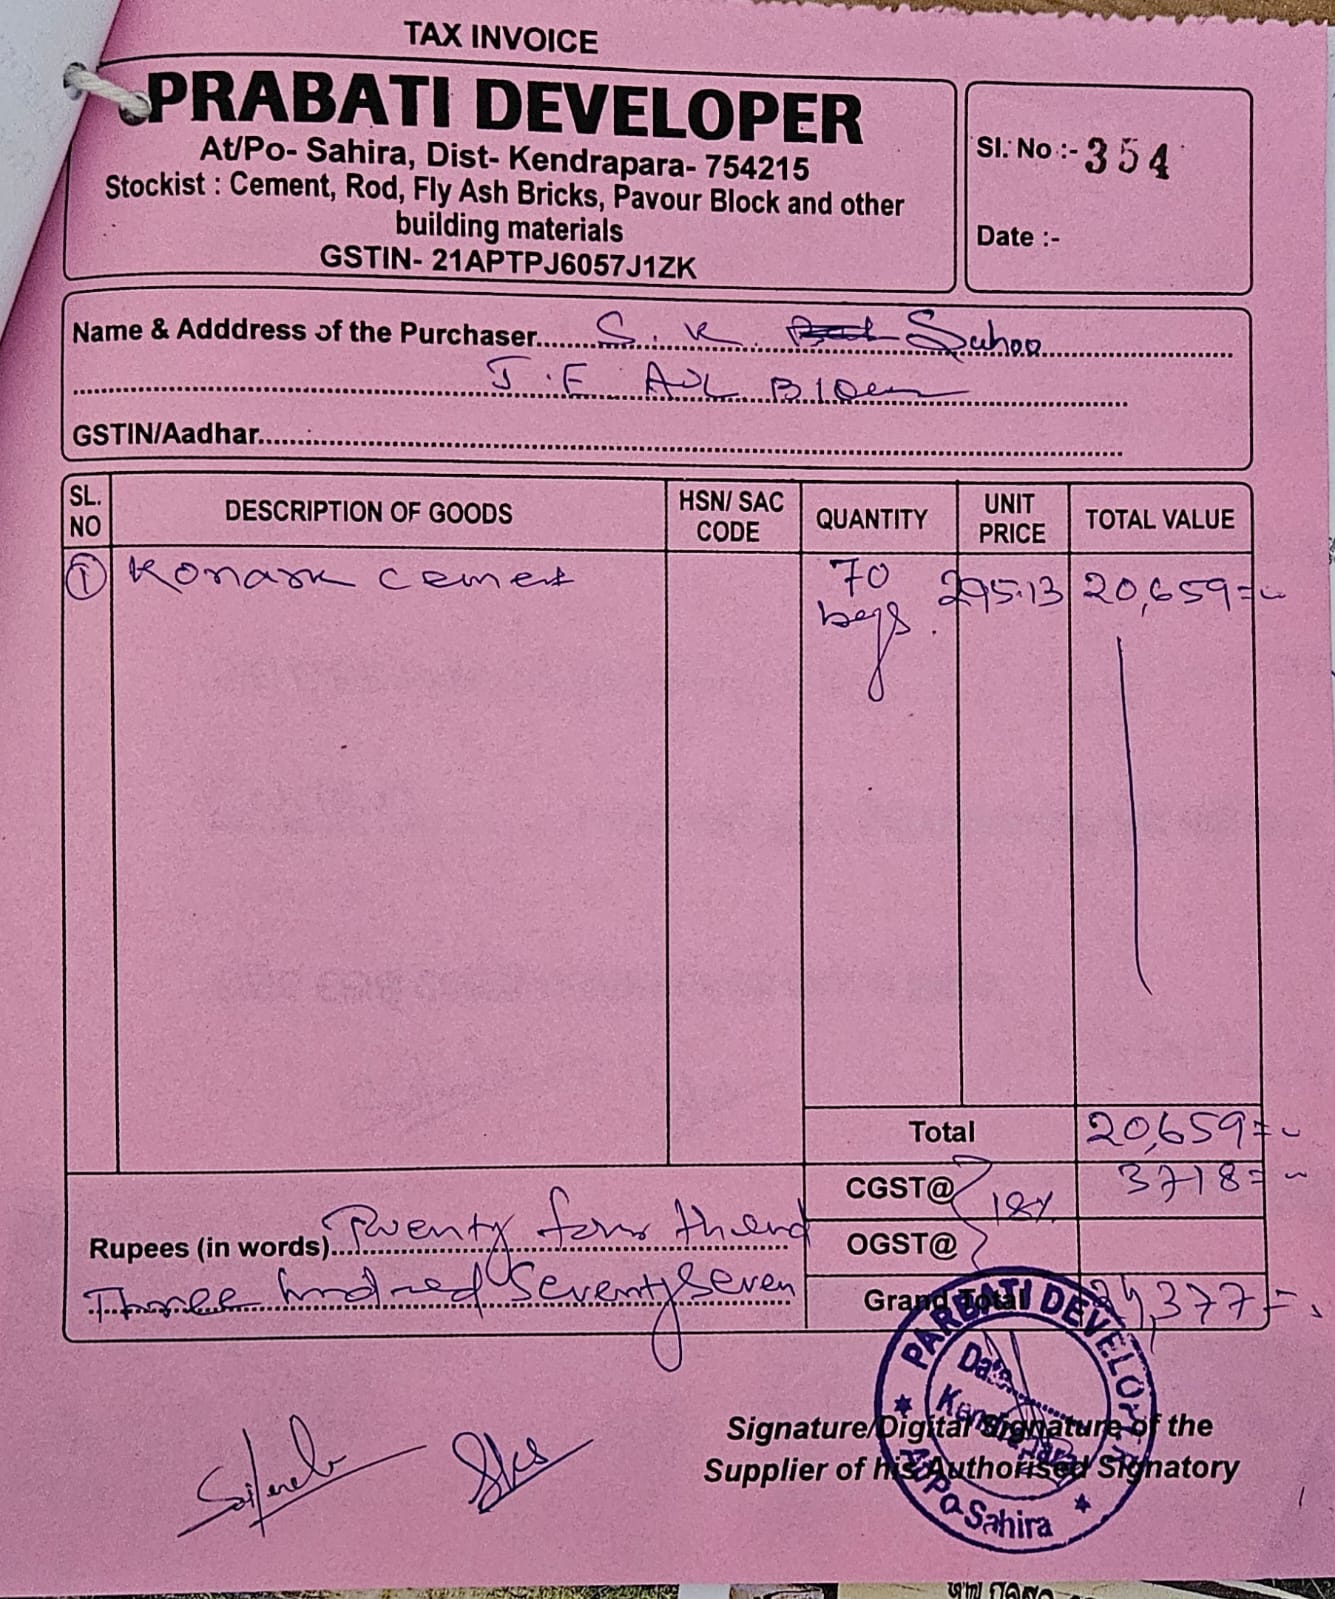 TAX INVOICE
PRABATI DEVELOPER
At/Po- Sahira, Dist- Kendrapara- 754215
Stockist : Cement, Rod, Fly Ash Bricks, Pavour Block and other
building materials
GSTIN- 21APTPJ6057J1ZK
Sl. No :- 354
Date :-
Name & Adddress of the Purchaser S. K. Sahoo
J.E AUL Block
GSTIN/Aadhar
SL. NO DESCRIPTION OF GOODS HSN/ SAC CODE QUANTITY UNIT PRICE TOTAL VALUE
1 Konark cement 70 bags. 295.13 20,659=
Total 20,659=
CGST@ 18% 3718=
OGST@
Grand Total 24,377=
Rupees (in words) Twenty four thend
Three hundred Seventy Seven
PARBATI DEVELOPER
Date
Kendrapara
At/Po-Sahira
Signature/Digital Signature of the
Supplier of his Authorised Signatory